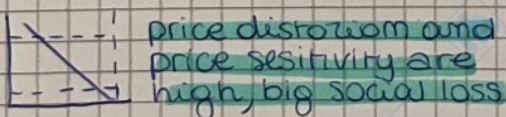 price distorziom and
price sesitivity are
high, big social loss